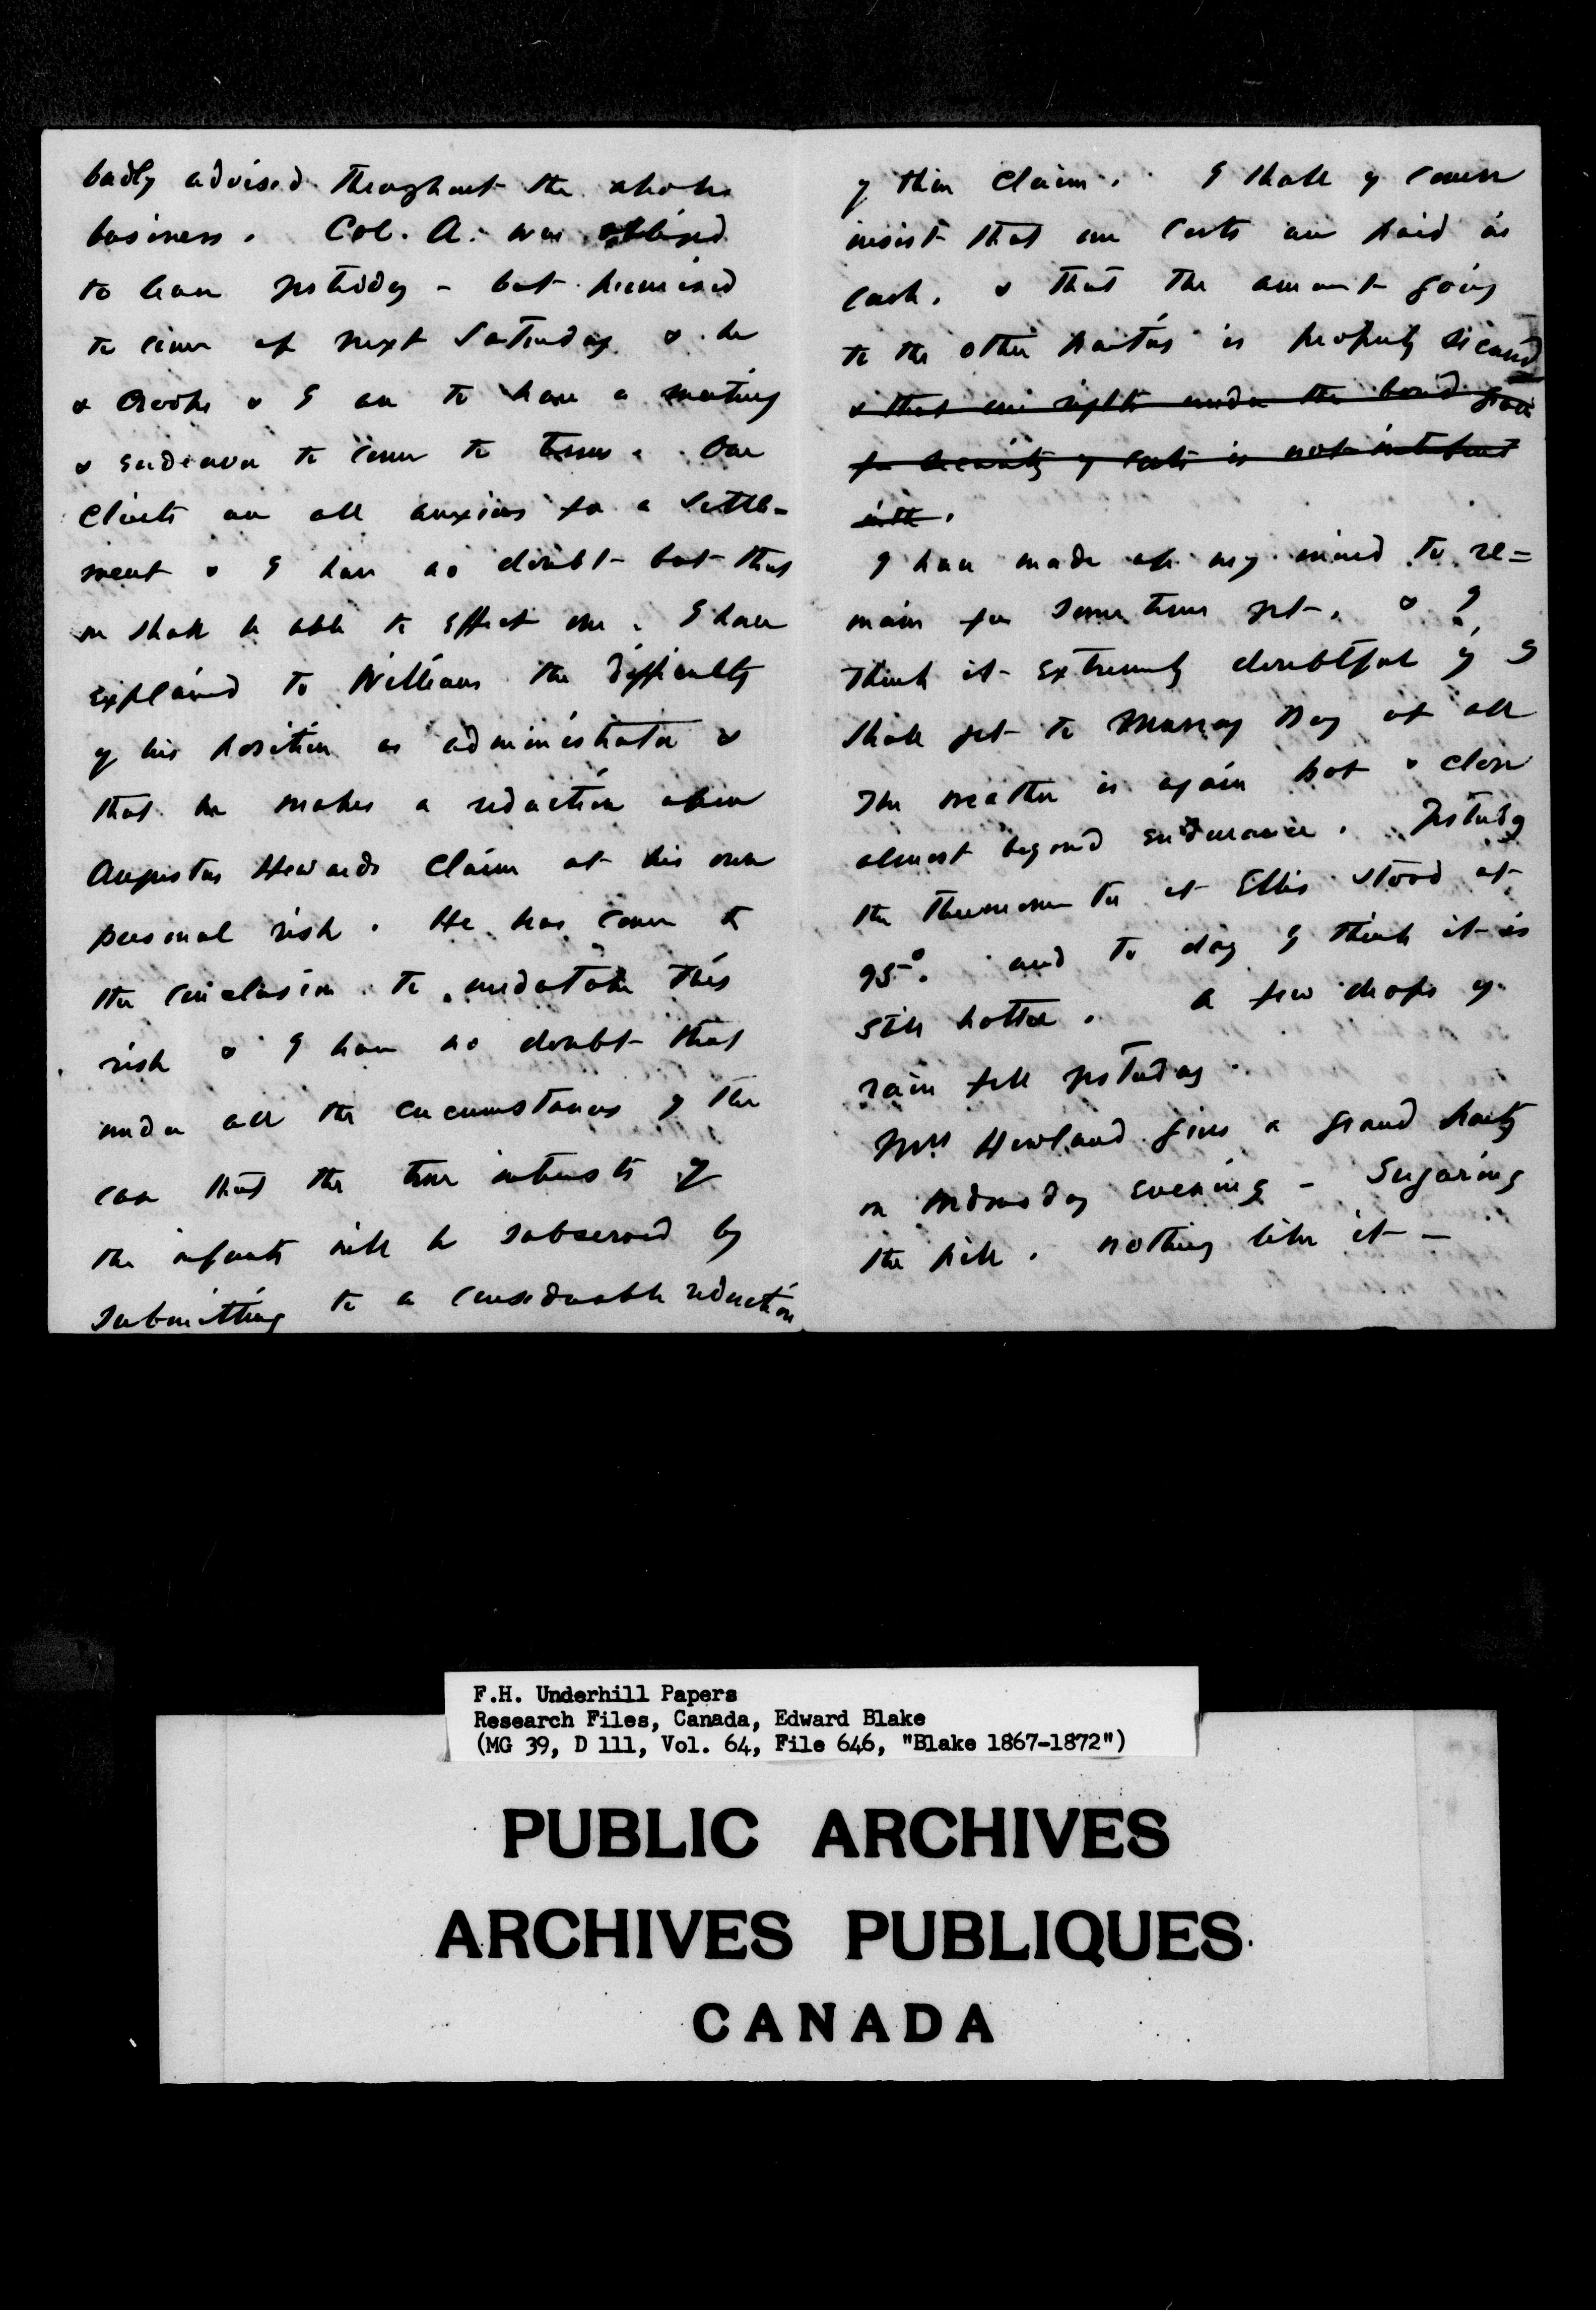 badly advised throughout the whole
business. Col. A. was obliged
to leave yesterday - but promised
to come up next Saturday & he
& Crooks & I are to have a meeting
& endeavor to come to terms. Our
Clients are all anxious for a settle-
ment & I have no doubt but that
we shall be able to effect one. I have
explained to Williams the difficulty
of his position as administrator &
that he makes a reduction upon
Augustus Howards Claim at his own
personal risk. He has come to
the conclusion to undertake this
risk & I have no doubt that
under all the circumstances of the
case that the true interests of
the infants will be subserved by
submitting to a considerable reduction
of their claim. I shall of course
insist that our Costs are paid in
cash. & that the amount going
to the other parties is properly secured
& that our rights under the bond given
for security of costs is not interfered
with.
I have made up my mind to re=
main for some time yet. & I
think it extremely doubtful if I
shall get to Murray Bay at all
The weather is again hot & close
almost beyond endurance. Yesterday
the thermometer at Ellis stood at
95°. and to day I think it is
still hotter. A few drops of
rain fell yesterday
Mrs Howland gives a grand party
on Wednesday evening - Sugaring
the pill. nothing like it -
F.H. Underhill Papers
Research Files, Canada, Edward Blake
(MG 39, D 111, Vol. 64, File 646, "Blake 1867-1872")
PUBLIC ARCHIVES
ARCHIVES PUBLIQUES
CANADA